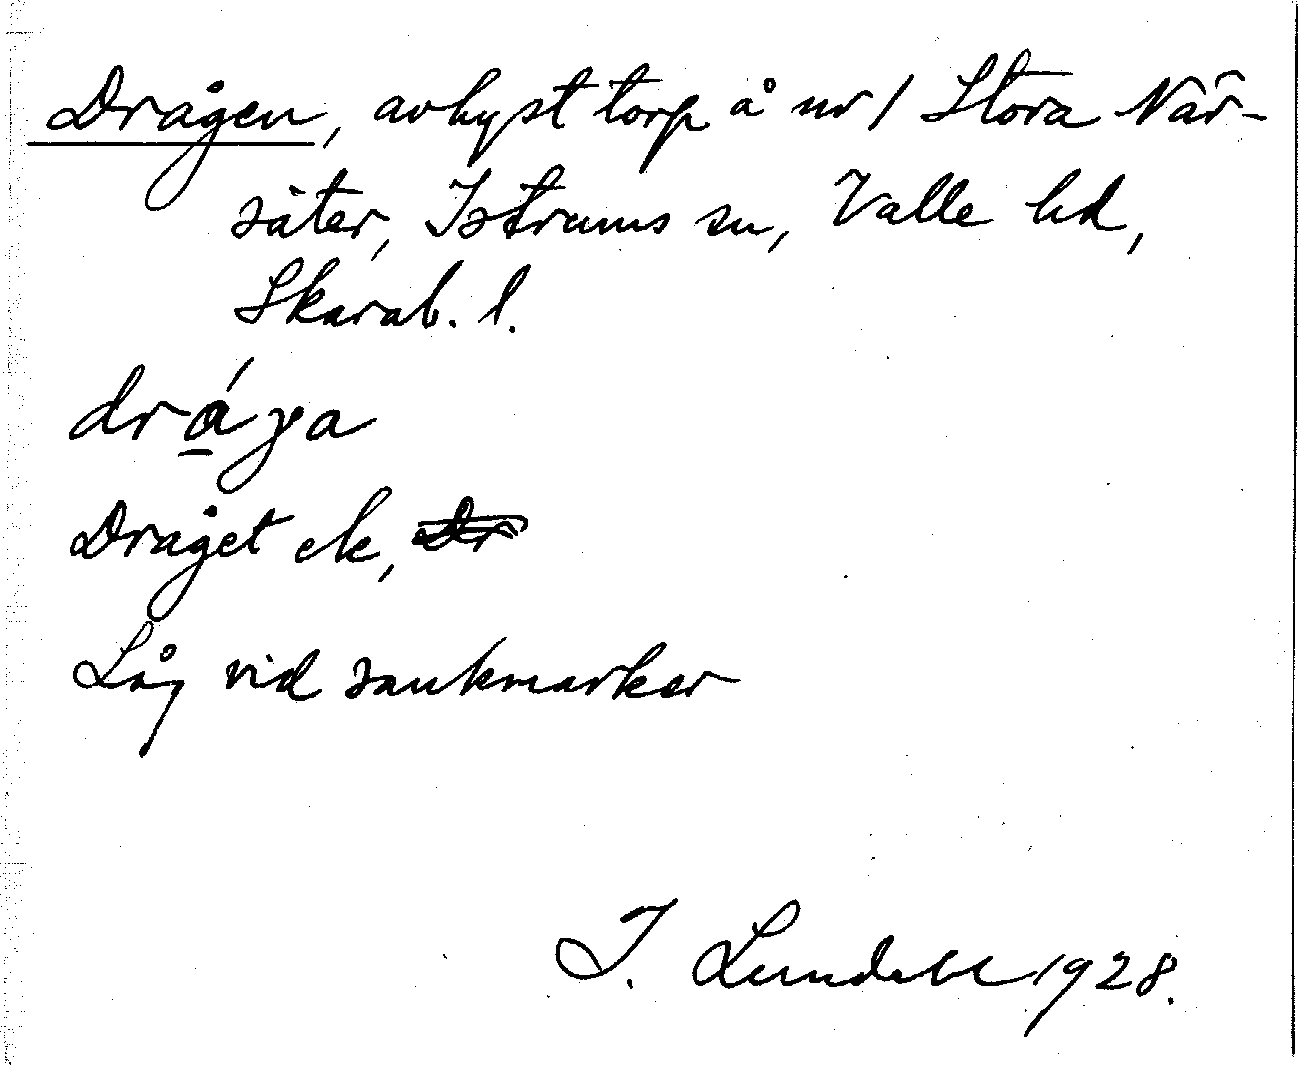 Drågen, avhyst torp å nr 1 Stora När-
säter, Istrums sn, Valle hd,
Skarab. l.
drá̱ga
Dråget ek,
Låg vid sankmarker
I. Lundahl 1928.